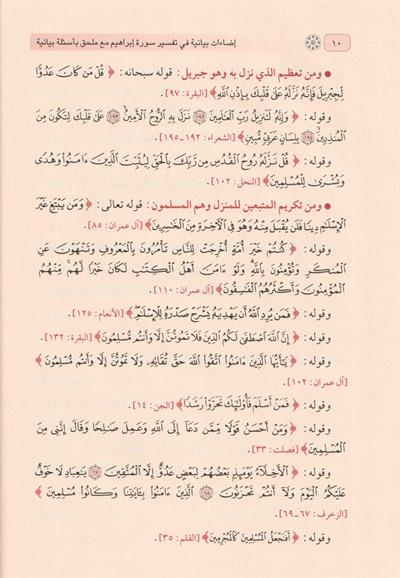 ١٠ إضاءات بيانية في تفسير سورة إبراهيم مع ملحق بأسئلة بيانية
● ومن تعظيم الذي نزل به وهو جبريل: قوله سبحانه: ﴿قُلْ مَن كَانَ عَدُوًّا
لِّجِبْرِيلَ فَإِنَّهُۥ نَزَّلَهُۥ عَلَىٰ قَلْبِكَ بِإِذْنِ ٱللَّهِ﴾ [البقرة: ٩٧].
وقوله: ﴿وَإِنَّهُۥ لَتَنزِيلُ رَبِّ ٱلْعَٰلَمِينَ ١٩٢ نَزَلَ بِهِ ٱلرُّوحُ ٱلْأَمِينُ ١٩٣ عَلَىٰ قَلْبِكَ لِتَكُونَ مِنَ
ٱلْمُنذِرِينَ ١٩٤ بِلِسَانٍ عَرَبِىٍّ مُّبِينٍ﴾ [الشعراء: ١٩٢ -١٩٥].
وقوله: ﴿قُلْ نَزَّلَهُۥ رُوحُ ٱلْقُدُسِ مِن رَّبِّكَ بِٱلْحَقِّ لِيُثَبِّتَ ٱلَّذِينَ ءَامَنُوا۟ وَهُدًى
وَبُشْرَىٰ لِلْمُسْلِمِينَ﴾ [النحل: ١٠٢].
● ومن تكريم المتبعين للمنزل وهم المسلمون: قوله تعالى: ﴿وَمَن يَبْتَغِ غَيْرَ
ٱلْإِسْلَٰمِ دِينًا فَلَن يُقْبَلَ مِنْهُ وَهُوَ فِى ٱلْءَاخِرَةِ مِنَ ٱلْخَٰسِرِينَ﴾ [آل عمران: ٨٥].
وقوله: ﴿كُنتُمْ خَيْرَ أُمَّةٍ أُخْرِجَتْ لِلنَّاسِ تَأْمُرُونَ بِٱلْمَعْرُوفِ وَتَنْهَوْنَ عَنِ
ٱلْمُنكَرِ وَتُؤْمِنُونَ بِٱللَّهِ وَلَوْ ءَامَنَ أَهْلُ ٱلْكِتَٰبِ لَكَانَ خَيْرًا لَّهُم مِّنْهُمُ
ٱلْمُؤْمِنُونَ وَأَكْثَرُهُمُ ٱلْفَٰسِقُونَ﴾ [آل عمران: ١١٠].
وقوله: ﴿فَمَن يُرِدِ ٱللَّهُ أَن يَهْدِيَهُۥ يَشْرَحْ صَدْرَهُۥ لِلْإِسْلَٰمِ﴾ [الأنعام: ١٢٥].
وقوله: ﴿إِنَّ ٱللَّهَ ٱصْطَفَىٰ لَكُمُ ٱلدِّينَ فَلَا تَمُوتُنَّ إِلَّا وَأَنتُم مُّسْلِمُونَ﴾ [البقرة: ١٣٢].
وقوله: ﴿يَٰٓأَيُّهَا ٱلَّذِينَ ءَامَنُوا۟ ٱتَّقُوا۟ ٱللَّهَ حَقَّ تُقَاتِهِۦ وَلَا تَمُوتُنَّ إِلَّا وَأَنتُم مُّسْلِمُونَ﴾
[آل عمران: ١٠٢].
وقوله: ﴿فَمَنْ أَسْلَمَ فَأُو۟لَٰٓئِكَ تَحَرَّوْا۟ رَشَدًا﴾ [الجن: ١٤].
وقوله: ﴿وَمَنْ أَحْسَنُ قَوْلًا مِّمَّن دَعَآ إِلَى ٱللَّهِ وَعَمِلَ صَٰلِحًا وَقَالَ إِنَّنِى مِنَ
ٱلْمُسْلِمِينَ﴾ [فصلت: ٣٣].
وقوله: ﴿ٱلْأَخِلَّآءُ يَوْمَئِذٍۭ بَعْضُهُمْ لِبَعْضٍ عَدُوٌّ إِلَّا ٱلْمُتَّقِينَ ٦٧ يَٰعِبَادِ لَا خَوْفٌ
عَلَيْكُمُ ٱلْيَوْمَ وَلَآ أَنتُمْ تَحْزَنُونَ ٦٨ ٱلَّذِينَ ءَامَنُوا۟ بِـَٔايَٰتِنَا وَكَانُوا۟ مُسْلِمِينَ﴾
[الزخرف: ٦٧ -٦٩].
وقوله: ﴿أَفَنَجْعَلُ ٱلْمُسْلِمِينَ كَٱلْمُجْرِمِينَ﴾ [القلم: ٣٥].